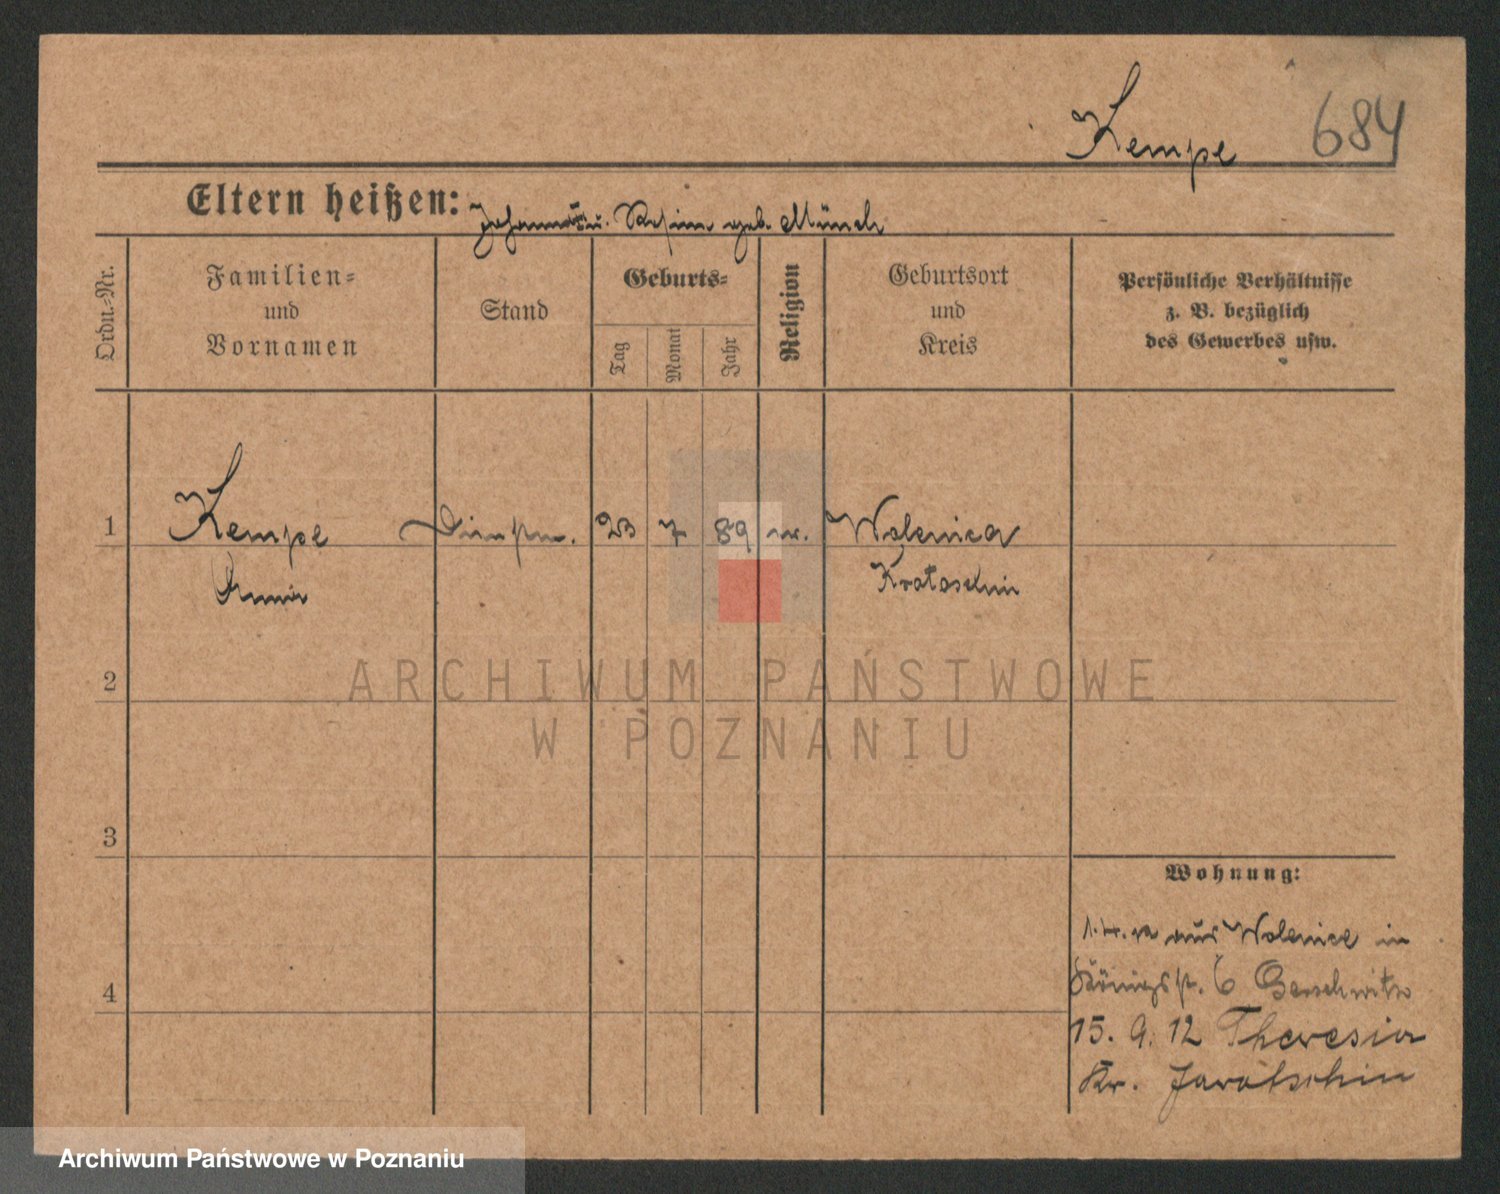 Kempe 684
Eltern heißen: Johann u. Rosina geb. Münch
Ordn.-Nr.
Familien-
und
Vornamen
Stand
Geburts-
Tag
Monat
Jahr
Religion
Geburtsort
und
Kreis
Persönliche Verhältnisse
z. B. bezüglich
des Gewerbes usw.
1 Kempe 23 7 89 Wolenica
Anna Krotoschin
2
3
4
Wohnung:
aus Wolenice in
Königspl. 6
15. 9. 12 Theresia
Kr. Jarotschin
ARCHIWUM PAŃSTWOWE
W POZNANIU
Archiwum Państwowe w Poznaniu